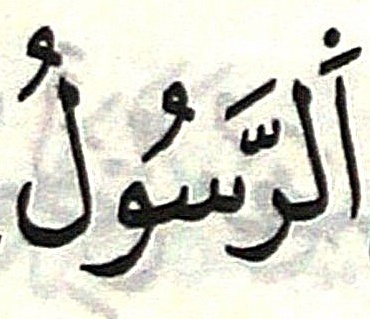 اَلرَّسُولُ